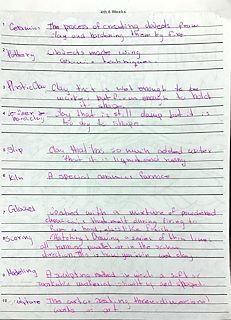 4th 6 Weeks
1 Ceramics The process of creating objects from
clay and hardening them by fire
2 Pottery objects made using
ceramic techniques
3 Plastic Clay Clay that is wet enough to be
worked but firm enough to hold
its shape
4 Clay that is still damp but it is
too dry to shape
5 Slip Clay that has so much added water
that it is liquified and runny
6 Kiln A special ceramic furnace
7 Glazes with a mixture of powdered
chemicals that melt during firing to
form a hard glass like finish
8 Scoring Drawing a series of thin lines
all running parallel or in the same
direction
9 Modeling A sculpting method in which a soft or
workable material is and shaped
10 The three-dimensional
works of art